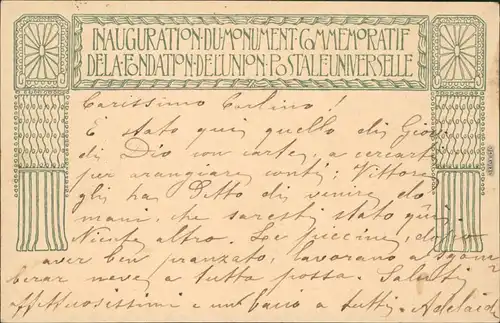 INAUGURATION·DU·MONUMENT·COMMEMORATIF
DE·LA·FONDATION·DE·L'UNION·POSTALE·UNIVERSELLE
Carissimo Carlino!
È stato qui quello di Giov.
di Dio con carte, a cercarti
per arrangiare conti; Vittore
gli ha detto di venire do
mani, che saresti stato qui.
Niente altro. Le piccine, dopo
aver ben pranzato, lavorano a sgom
berar neve a tutta possa. Saluti
affettuosissimi e un bacio a tutti. Adelaid